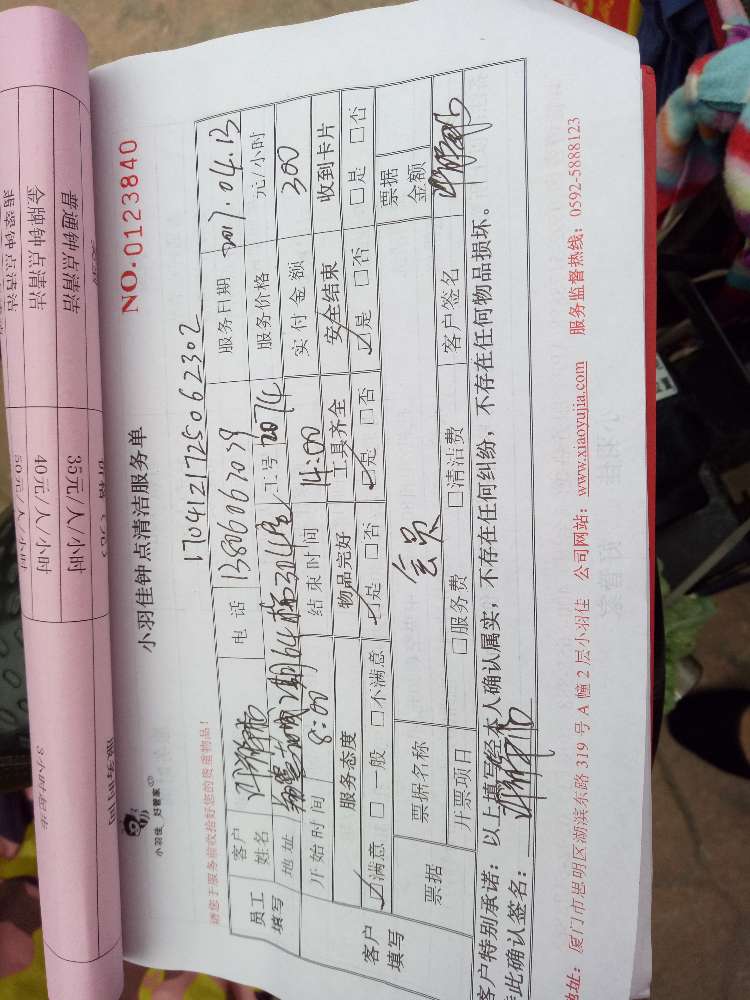 小羽佳钟点清洁服务单
NO.0123840
小羽佳 好管家
请您于服务前收拾好您的贵重物品！
1704121725062302
员工填写
客户姓名
电 话 13806067079
服务日期 2017.04.13
地址
工号 2074
服务价格 元/小时
开始时间 8:00
结束时间 14:00
实付金额 300
客户填写
服务态度
物品完好
工具齐全
安全结束
收到卡片
☑满意 □一般 □不满意
☑是 □否
☑是 □否
☑是 □否
□是 □否
票据
票据名称
会员
票据金额
开票项目
□服务费 □清洁费
客户签名
客户特别承诺：以上填写经本人确认属实，不存在任何纠纷，不存在任何物品损坏。
此确认签名：
地址：厦门市思明区湖滨东路 319 号 A 幢 2 层小羽佳 公司网站：www.xiaoyujia.com 服务监督热线：0592-5888123
普通钟点清洁 35元/人/小时
金牌钟点清洁 40元/人/小时
翡翠钟点清洁 50元/人/小时
3小时起步